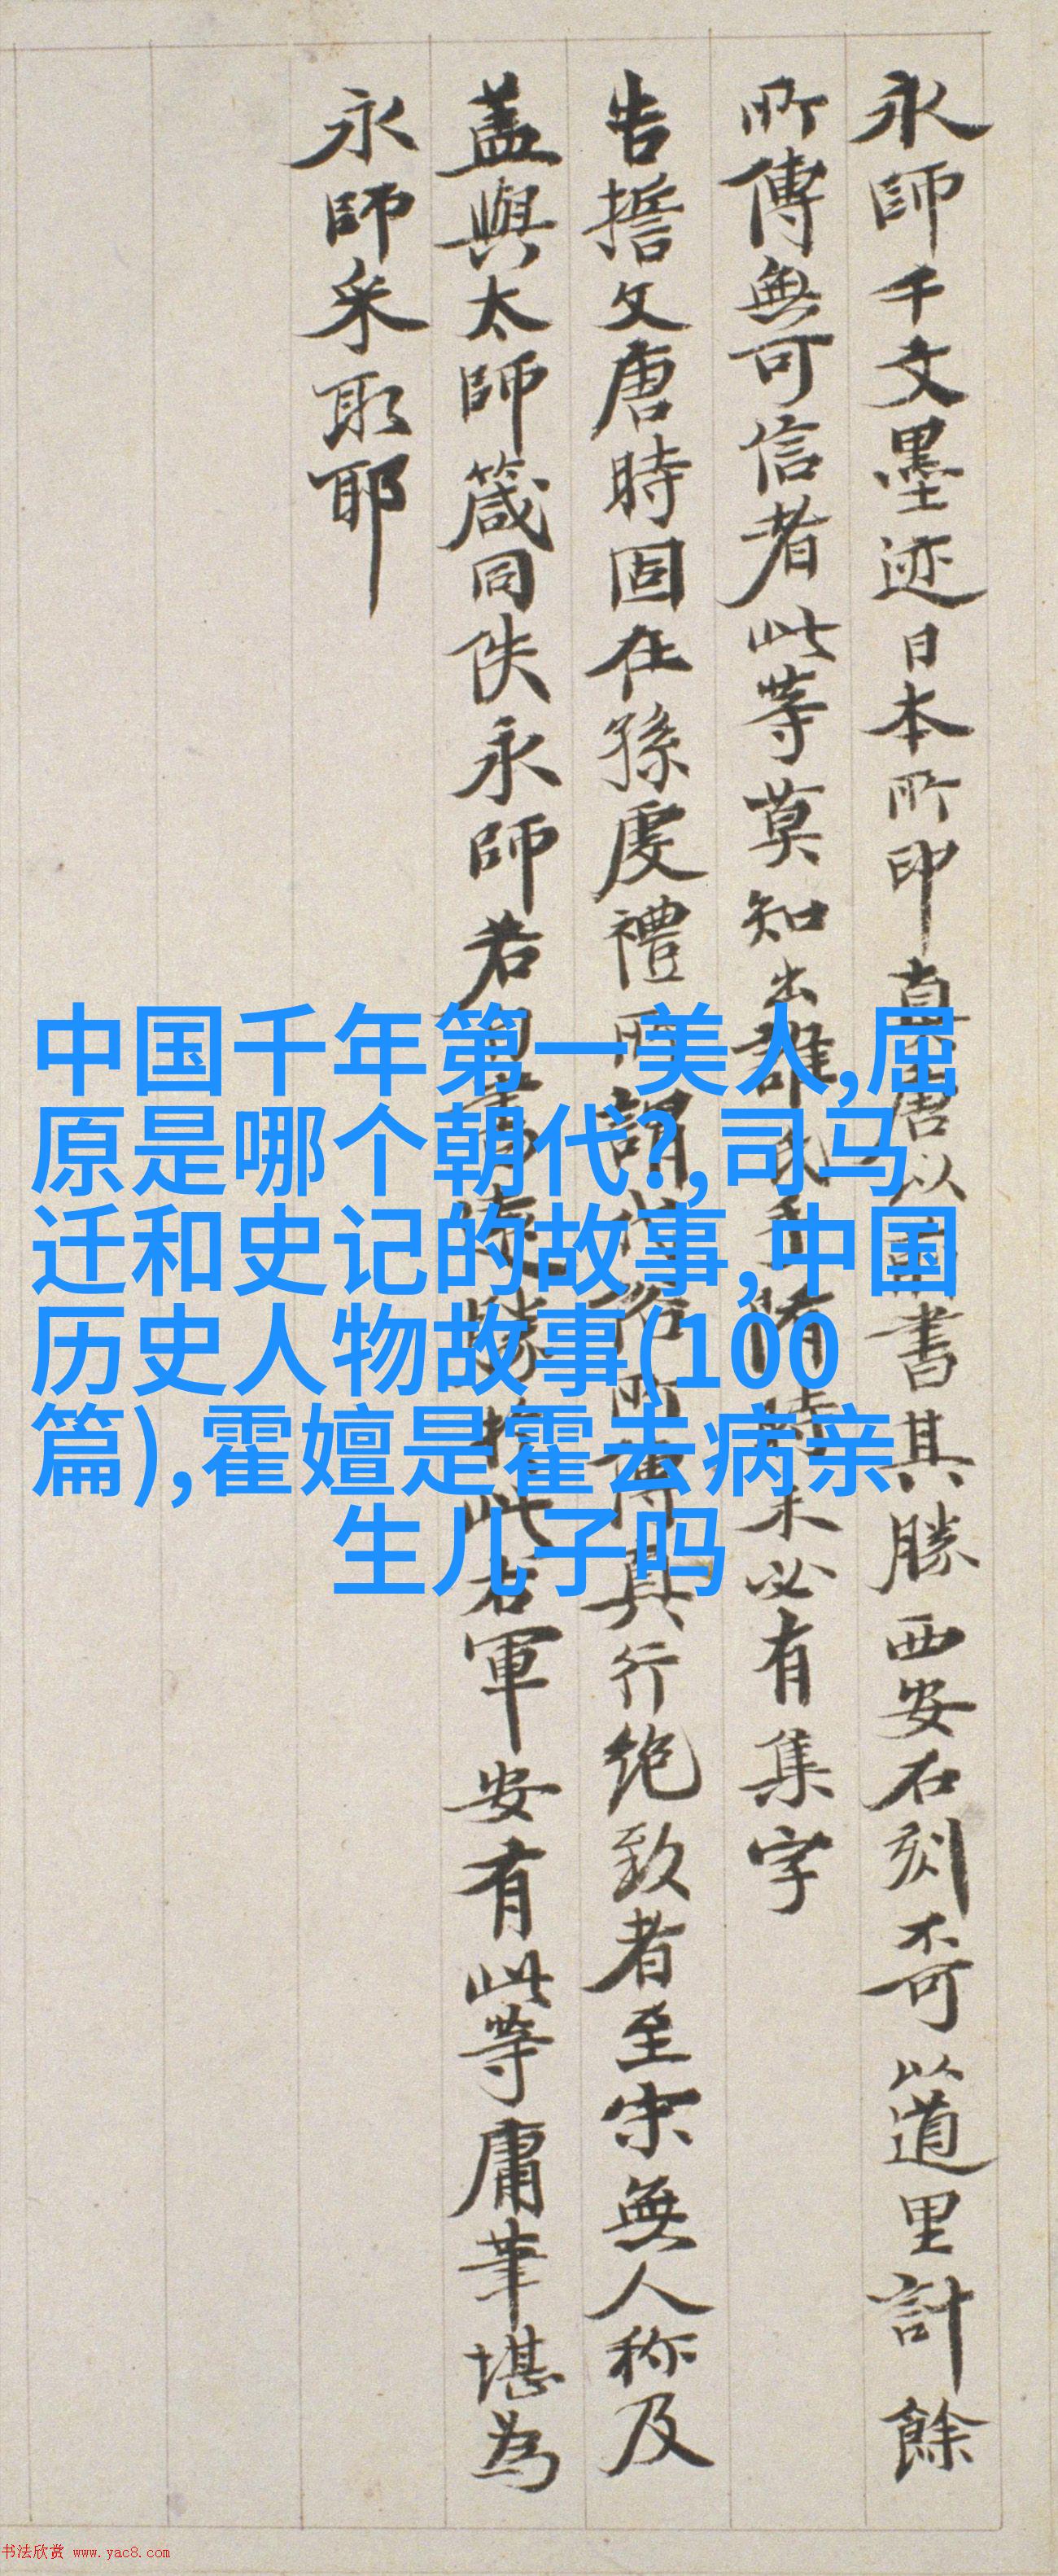 永師千文墨迹日本所印真唐以前書其勝西安石刻不可以道里計餘
所傳無可信者此等莫知出誰氏手隋時未必有集字
告誓文唐時固在孫虔禮所謂代俗所傳真行絶致者至宋無人称及
盖與太師箴同佚永師若此右軍安有此等庸筆堪為
永師采取耶
中国千年第一美人,屈
原是哪个朝代?,司马
迁和史记的故事,中国
历史人物故事(100
篇),霍嬗是霍去病亲
生儿子吗
书法欣赏 www.yac8.com